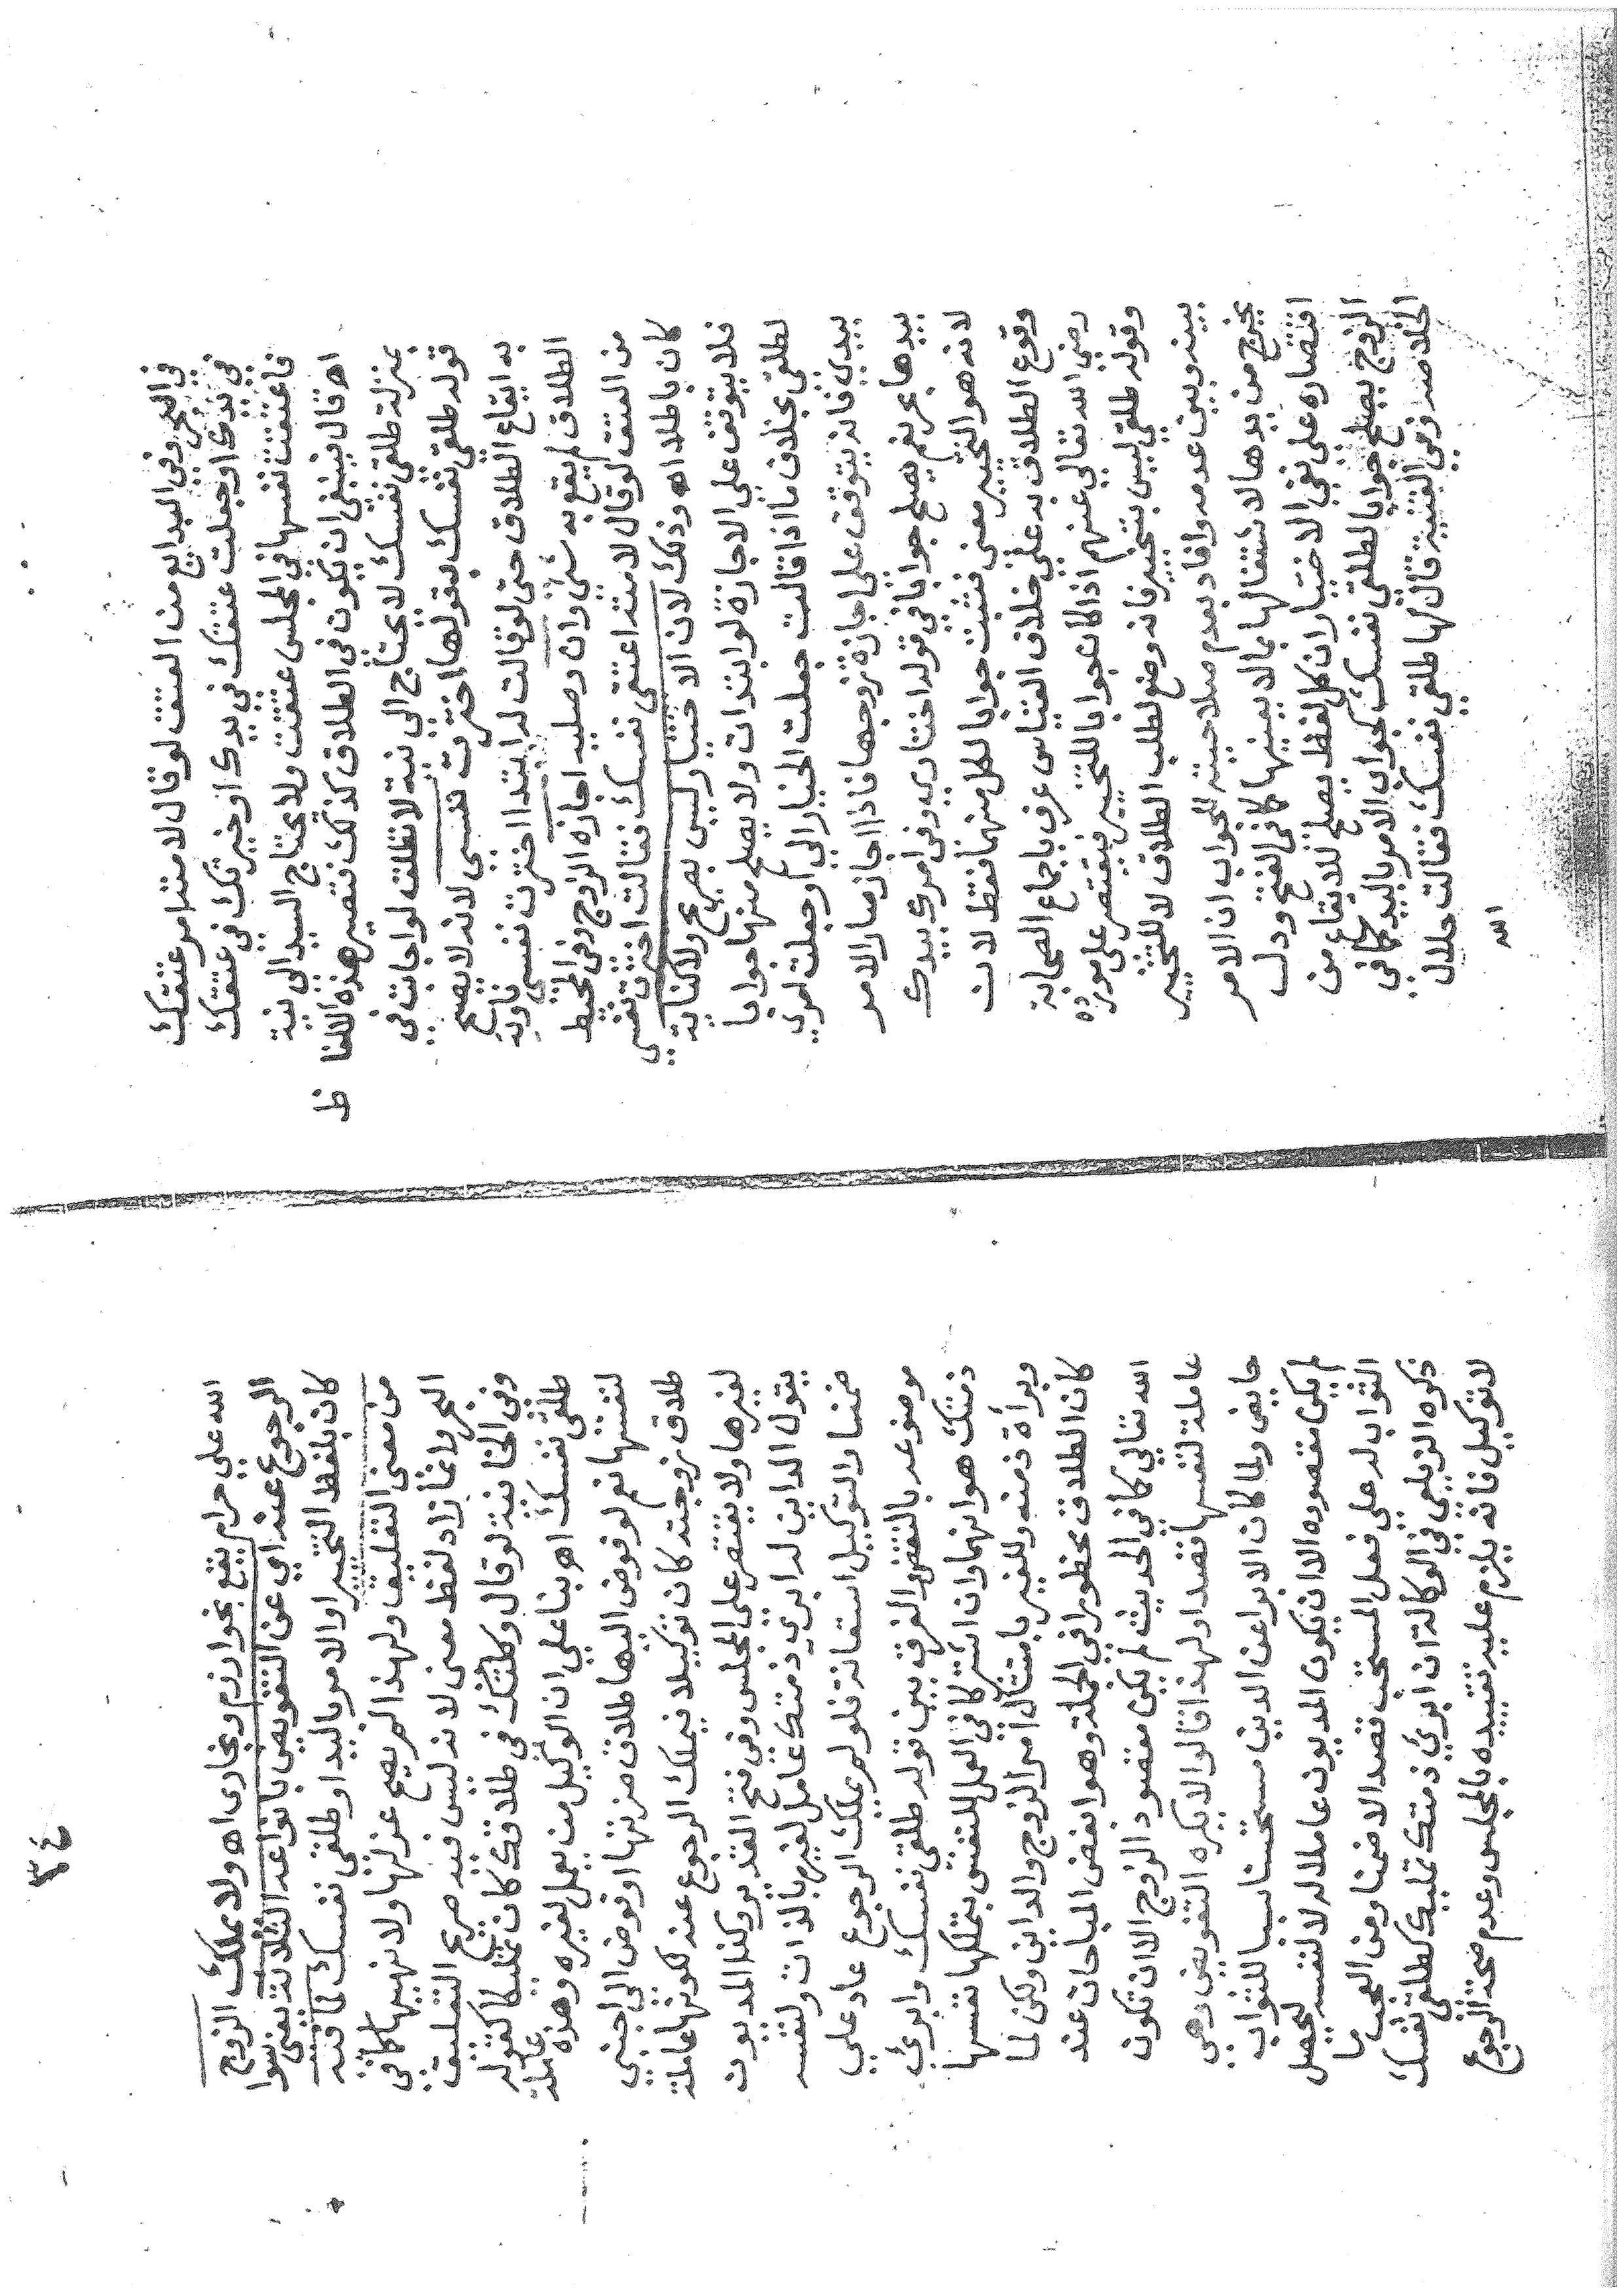 في البحر وفي البدايع من العتق لو قال لامته امر عتقك
في يدك او جعلت عتقك في يدك او خيرتك في عتقك
فاعتقت نفسها في المجلس عتقت ولا يحتاج السيد الى نية
اه قال فينبغي ان يكون في الطلاق كذلك فتصير هذه الالفاظ
بمنزلة طلقي نفسك لا يحتاج الى نية لا تطلق لو اجابته في
قوله طلقي نفسك بقولها اخترت نفسي لانه لا يصح
به ايقاع الطلاق حتى لو قالت له ابتدا اخترت نفسي ناوية
الطلاق لم يقع به شيء وان وصلية اجازه الزوج وفي المحيط
من العتق لو قال لامته اعتقي نفسك فقالت اخترت نفسي
كان باطلا اه وذلك لان الاختيار ليس بصريح ولا كناية
فلا يتوقف على الاجازة لو ابتدات ولا يصلح منها جوابا
لطلقي بخلاف ما اذا قالت جعلت الخيار الي او جعلت امري
بيدي فانه يتوقف على اجازة زوجها فاذا اجاز صار الامر
بيدها نعم يصلح جوابا في قوله اختاري وفي امرك بيدك
لانه هو التخيير معنى فثبت جوابا لكل منهما فقط لان
وقوع الطلاق به على خلاف القياس عرف باجماع الصحابة
رضي الله تعالى عنهم اذا كان جوابا للتخيير فيقتصر على مورده
وقوله طلقي ليس بتخيير فانه وضع لطلب الطلاق لا للتخيير
بينه وبين عدمه وافاد بعدم صلاحيته للجواب ان الامر
يخرج من يدها لاشتغالها بما لا يعنيها كما في الفتح ودل
اقتصاره على نفي الاختيار ان كل لفظ يصلح للايقاع من
الزوج يصلح جوابا لطلقي نفسك كجواب الامر باليد كما في
الخلاصة وفي القنية قال لها طلقي نفسك فقالت حلال
الله
٣٤
الله علي حرام يقع بخوارزم وبخارى اه ولا يملك الزوج
الرجوع عنه اي عن التفويض بانواعه الثلاثة يعني سوا
كان بلفظ التخيير او الامر باليد او طلقي نفسك لما فيه
من معنى التعليق ولهذا لم يصح عزلها ولا نهيها كما في
البحر وانما زاد لفظ معنى لانه ليس فيه صريح التعليق
وفي الخانية لو قال وكلتك في طلاقك كان تمليكا كقوله
طلقي نفسك اه بنا على ان الوكيل من يعمل لغيره وهذه عاملة
لنفسها نعم لو فوض اليها طلاق ضرتها او فوض الى اجنبي
طلاق زوجته كان توكيلا فيملك الرجوع عنه لكونها عاملة
لغيرها ولا يقتصر على المجلس وفي فتح القدير وكذا المديون
يقول الداين له ابري ذمتك عامل لغيره بالذات ولنفسه
ضمنا والتوكيل استعانة فلو لم يملك الرجوع عاد على
موضوعه بالنقض والفرق بين قوله طلقي نفسك وابري
ذمتك هو انهما وان اشتركا في العمل للنفس بتملكها نفسها
وبراة ذمته وللغير بامتثال امر الزوج والداين ولكن لما
كان الطلاق محظورا في الجملة وهو ابغض المباحات عند
الله تعالى كما في الحديث لم يكن مقصود الزوج الا ان تكون
عاملة لنفسها قصدا ولهذا قالوا لا يكره التفويض وهي
حايض ولما كان الابرا عن الدين مستحسنا سببا للثواب
لم يكن مقصوده الا ان يكون المديون عاملا له لا لنفسه ليحصل
الثواب له على فعل المستحب قصدا لا ضمنا ومن العجب ما
ذكره الزيلعي في الوكالة ان ابري ذمتك تمليك كطلقي نفسك
لا توكيل فانه يلزم عليه تقييده بالمجلس وعدم صحة الرجوع